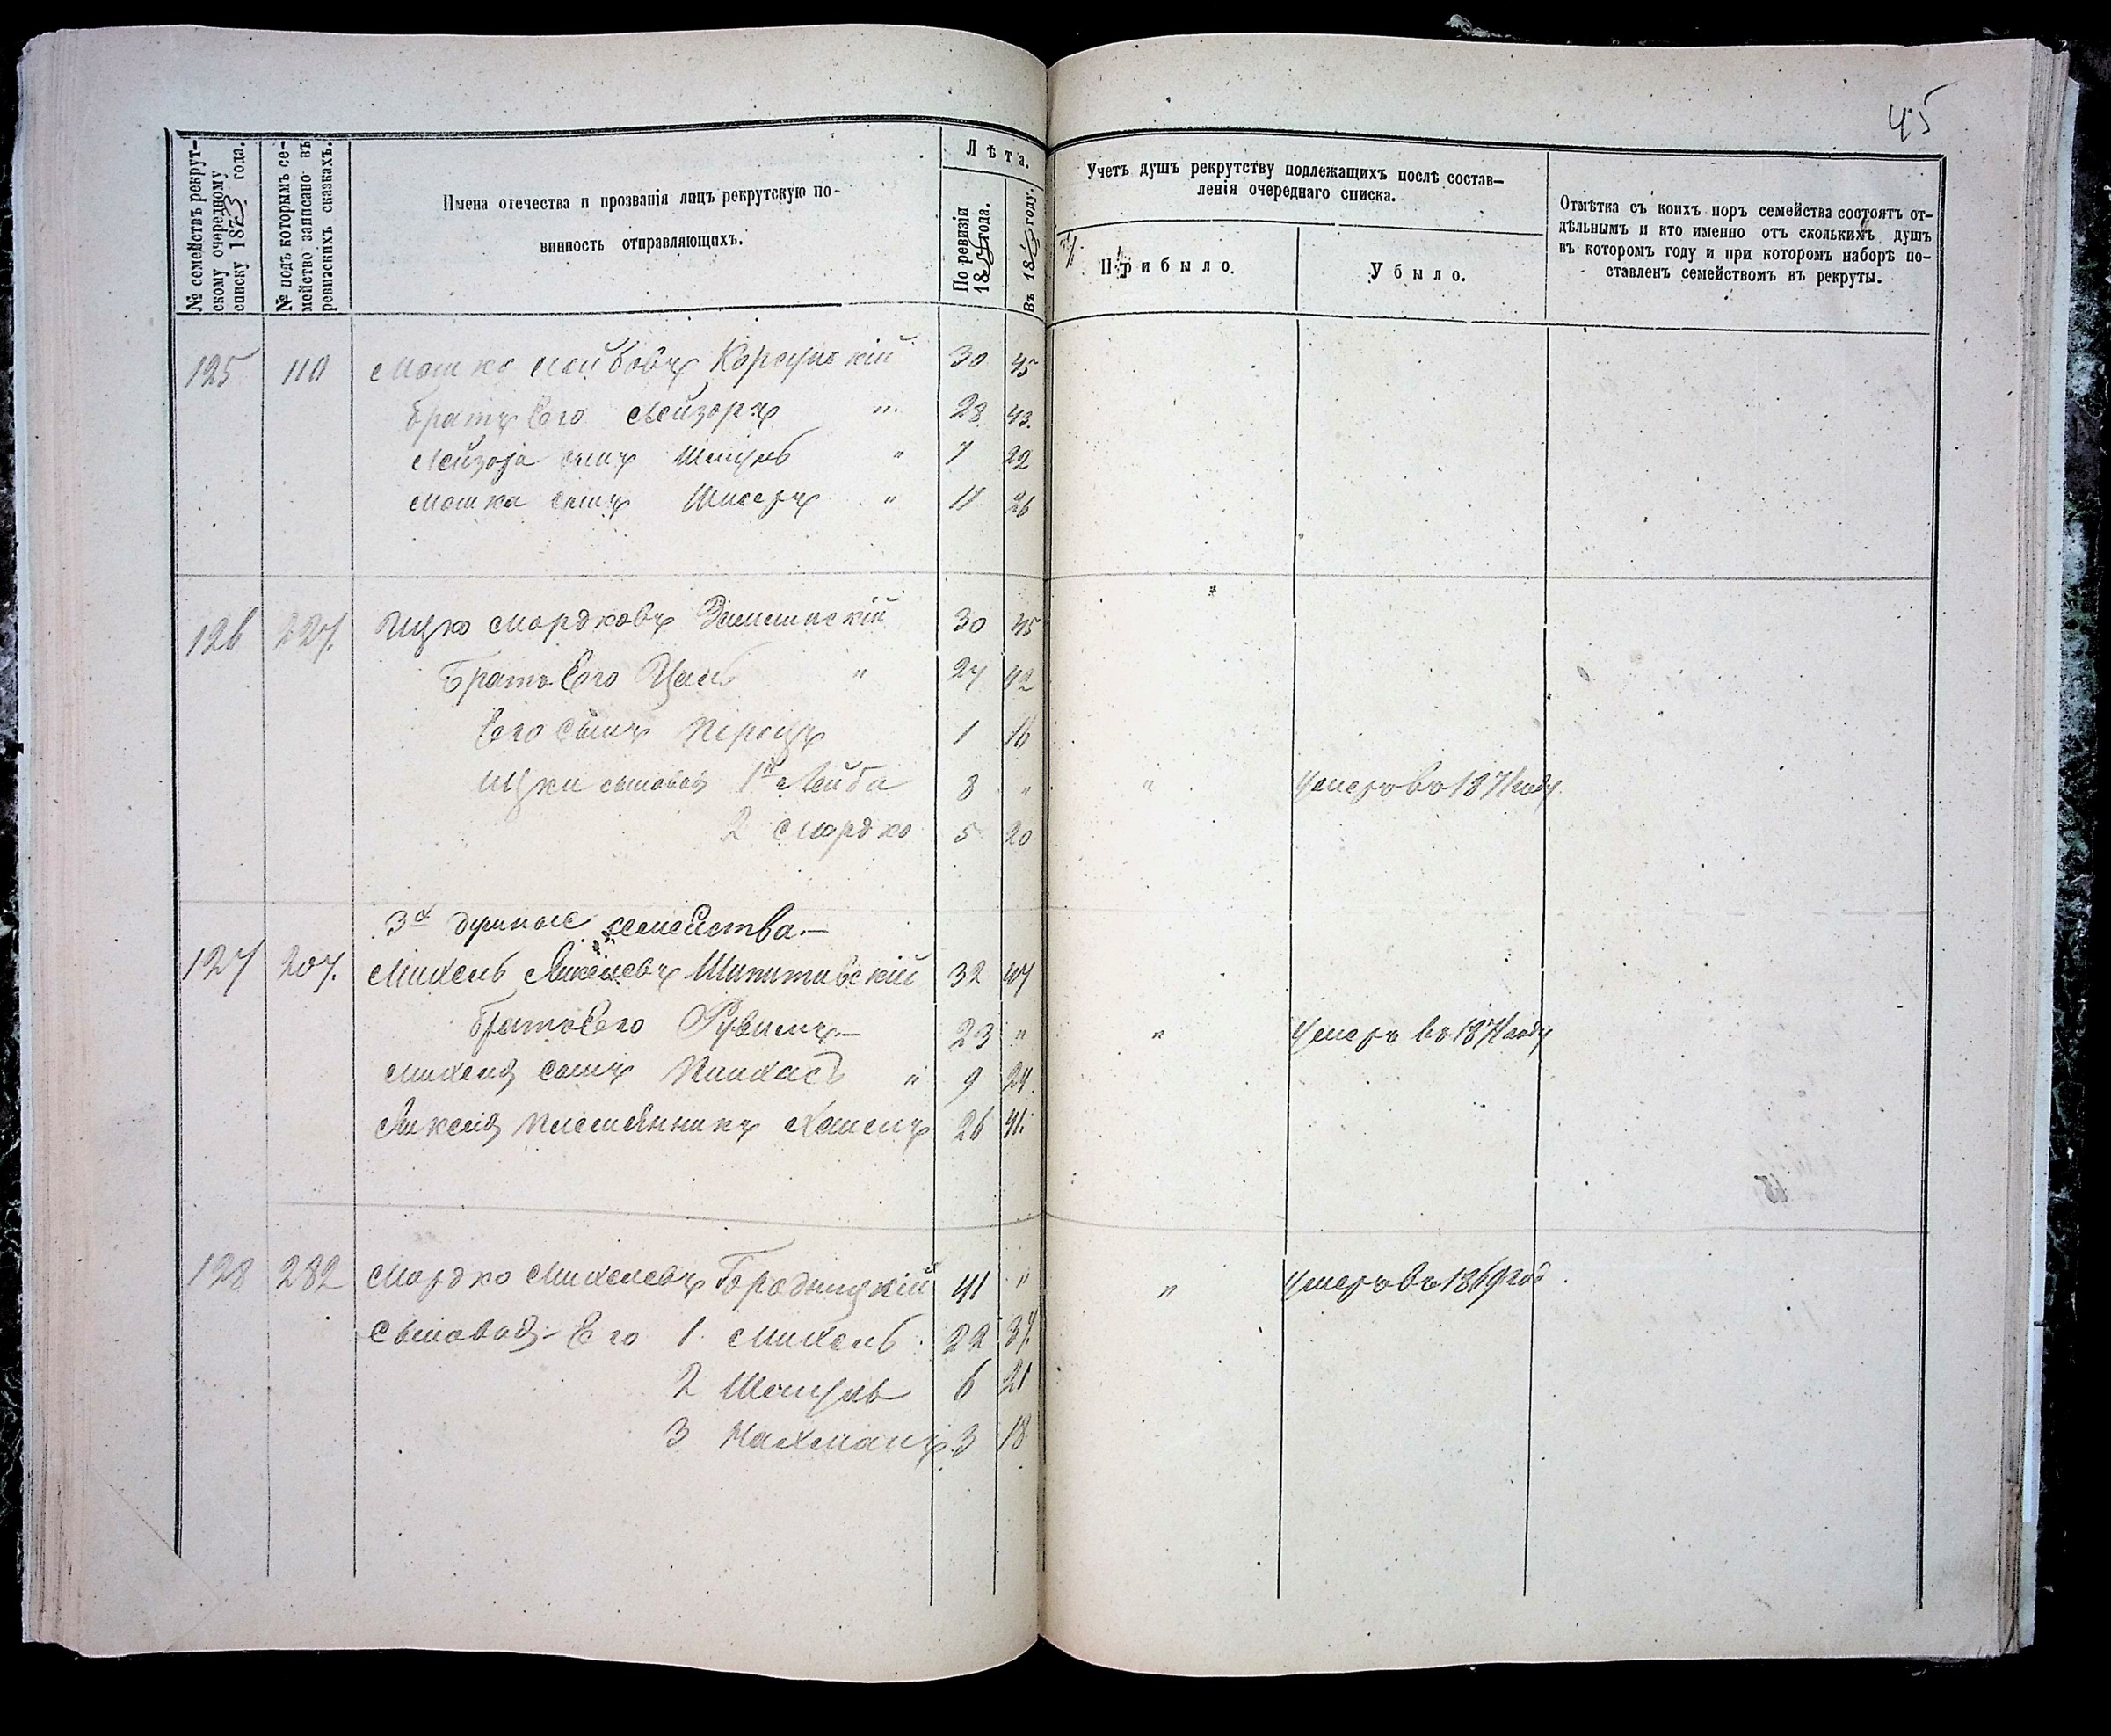 45
№ семействъ рекрут-
скому очередному
списку 1873 года.
№ подъ которымъ се-
мейство записано въ
ревизскихъ сказкахъ.
Имена отечества и прозванія лицъ рекрутскую по-
винность отправляющихъ.
Лѣта.
По ревизіи
18 года.
Въ 18 году.
Учетъ душъ рекрутству подлежащихъ послѣ состав-
ленія очереднаго списка.
Прибыло.
Убыло.
Отмѣтка съ коихъ поръ семейства состоятъ от-
дѣльнымъ и кто именно отъ сколькихъ душъ
въ которомъ году и при которомъ наборѣ по-
ставленъ семействомъ въ рекруты.
125 110 Мошко Лейбовъ 30 45
Братъ Его Лейзоръ " 28 43.
Лейзора сынъ Шмуль " 7 22
Мошка сынъ " 11 26
126 227. Ицко Мордковъ 30 45
Братъ Его " 27 42
Его Сынъ Перецъ 1 16
Ицки сыновья 1й Лейба 8 " " Умеръ въ 1871 году
2 Мордко 5 20
3х душные семейства.—
127 207. Михель Шипитовскій 32 47
братъ Его Рувинъ — 23 " " Умеръ въ 1871 году
Михеля сынъ Пинхасъ " 9 24.
Племянникъ 26 41.
128 282 Мордко Михелевъ Городницкій 41 " " Умеръ въ 1869 год
Сыновья Его 1. Михель 22 37.
2 Шмуль 6 21
3 Нахманъ 3 18